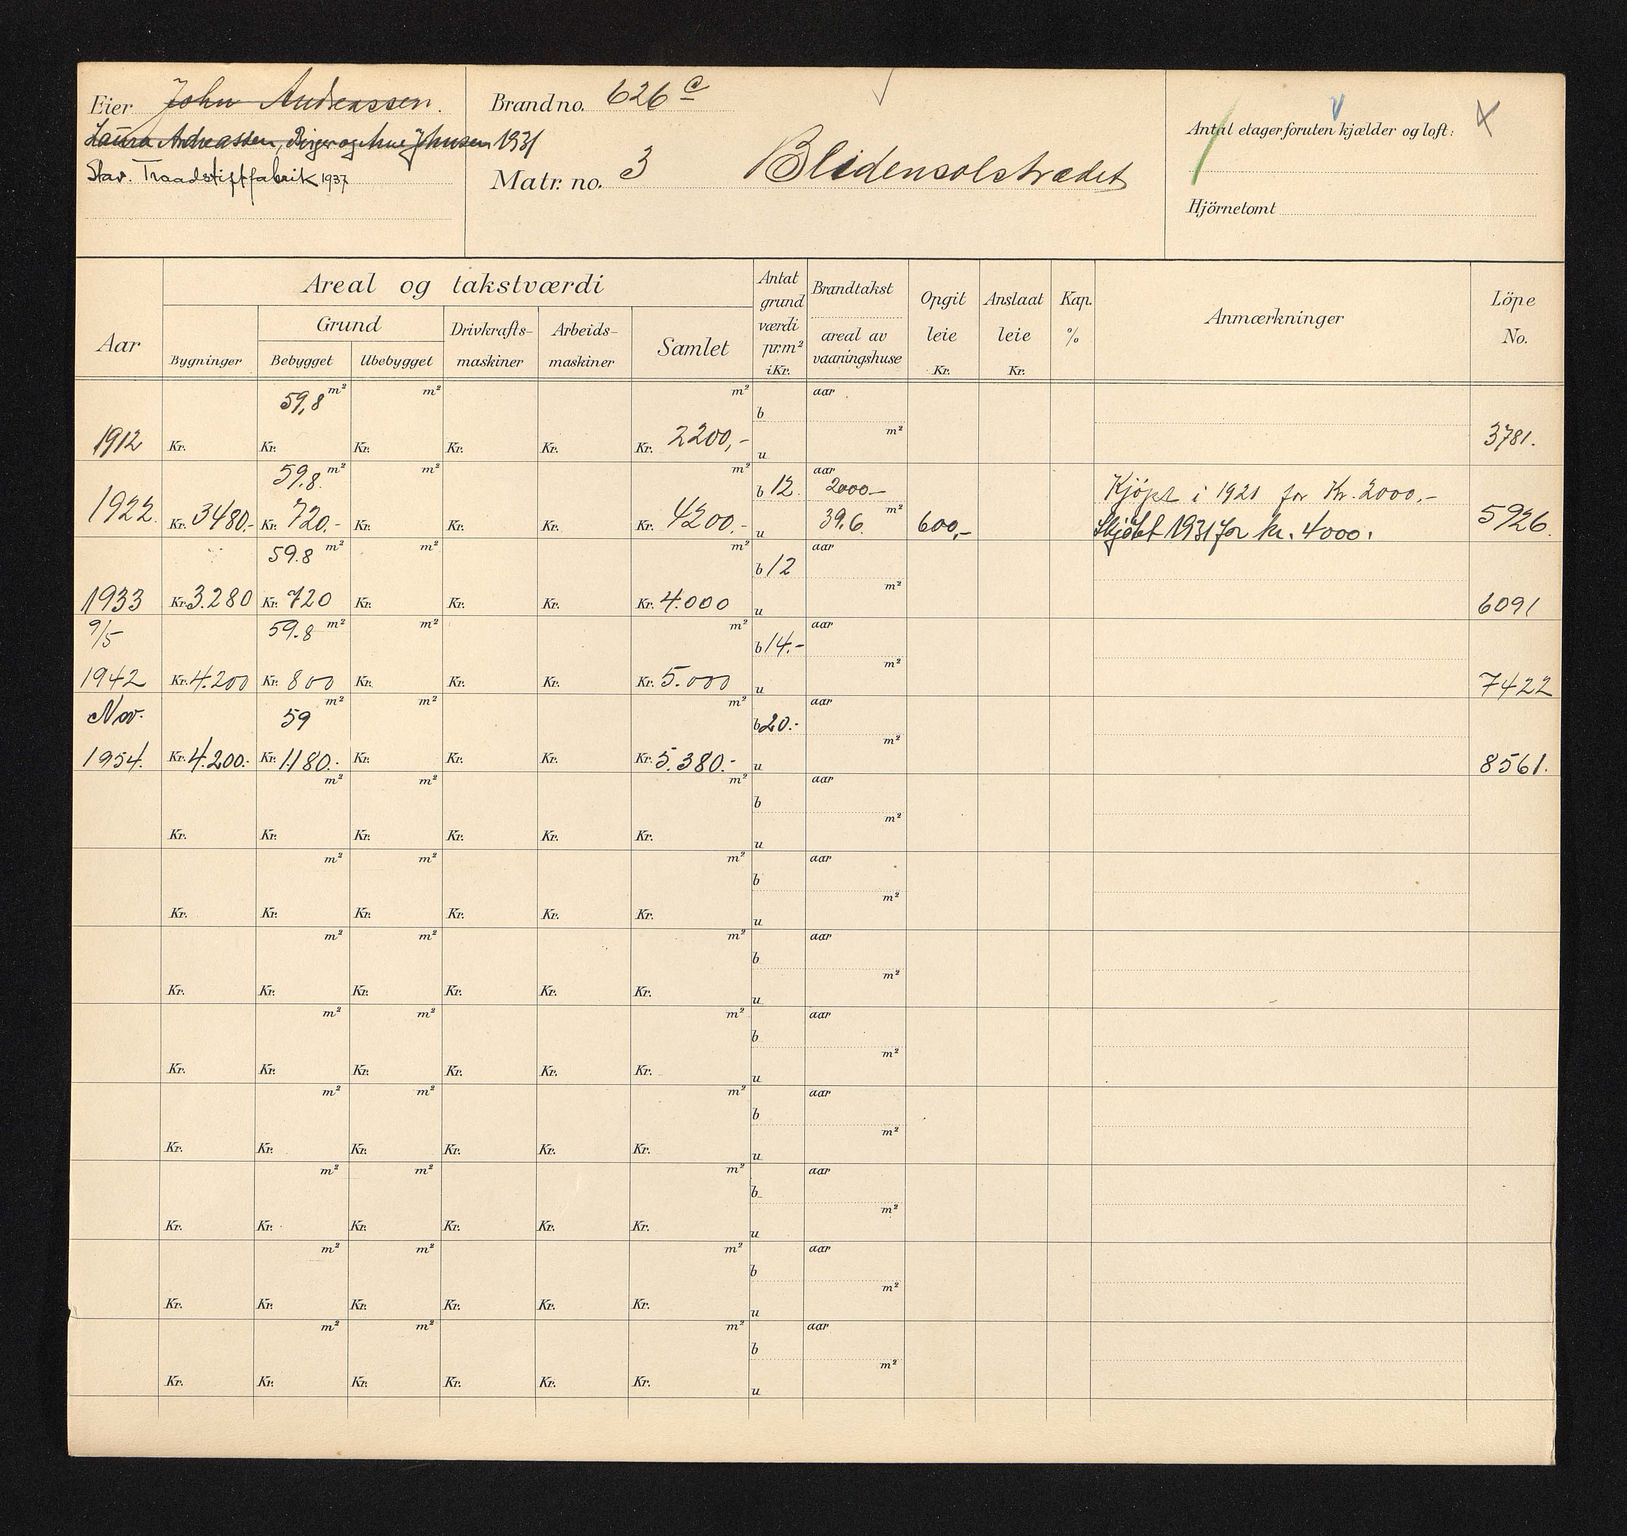 Eier John Andreassen.
Laura Andreassen, Birger og Anne Johnsen 1931
Stav. Traadstiftfabrik 1937
Brand no. 626 c
Matr. no. 3 Blidensolstrædet
Antal etager foruten kjælder og loft:
Hjörnetomt
Aar
Areal og takstværdi
Bygninger
Grund
Bebygget Ubebygget
Drivkrafts-
maskiner
Arbeids-
maskiner
Samlet
Antat
grund
værdi
pr. m²
i Kr.
Brandtakst
areal av
vaaningshuse
Opgit
leie
Kr.
Anslaat
leie
Kr.
Kap.
%
Anmærkninger
Löpe
No.
59,8 m² m² m² b aar
1912 Kr. Kr. Kr. Kr. Kr. Kr. 2200,- u m² 3781.
59,8 m² m² m² b 12. aar 2000.- Kjöpt i 1921 for Kr. 2000,-
1922. Kr. 3480.- Kr. 720.- Kr. Kr. Kr. Kr. 4200.- u 39,6 m² 600,- Skjötet 1931 for kr. 4000. 5926.
59.8 m² m² m² b 12 aar
1933 Kr. 3.280 Kr. 720 Kr. Kr. Kr. Kr. 4.000 u m² 6091
9/5 59.8 m² m² m² b 14.- aar
1942 Kr. 4.200 Kr. 800 Kr. Kr. Kr. Kr. 5.000 u m² 7422
Nov. 59 m² m² m² b 20.- aar
1954. Kr. 4.200.- Kr. 1180.- Kr. Kr. Kr. Kr. 5.380.- u m² 8561.
m² m² m² b aar
Kr. Kr. Kr. Kr. Kr. Kr. u m²
m² m² m² b aar
Kr. Kr. Kr. Kr. Kr. Kr. u m²
m² m² m² b aar
Kr. Kr. Kr. Kr. Kr. Kr. u m²
m² m² m² b aar
Kr. Kr. Kr. Kr. Kr. Kr. u m²
m² m² m² b aar
Kr. Kr. Kr. Kr. Kr. Kr. u m²
m² m² m² b aar
Kr. Kr. Kr. Kr. Kr. Kr. u m²
m² m² m² b aar
Kr. Kr. Kr. Kr. Kr. Kr. u m²
m² m² m² b aar
Kr. Kr. Kr. Kr. Kr. Kr. u m²